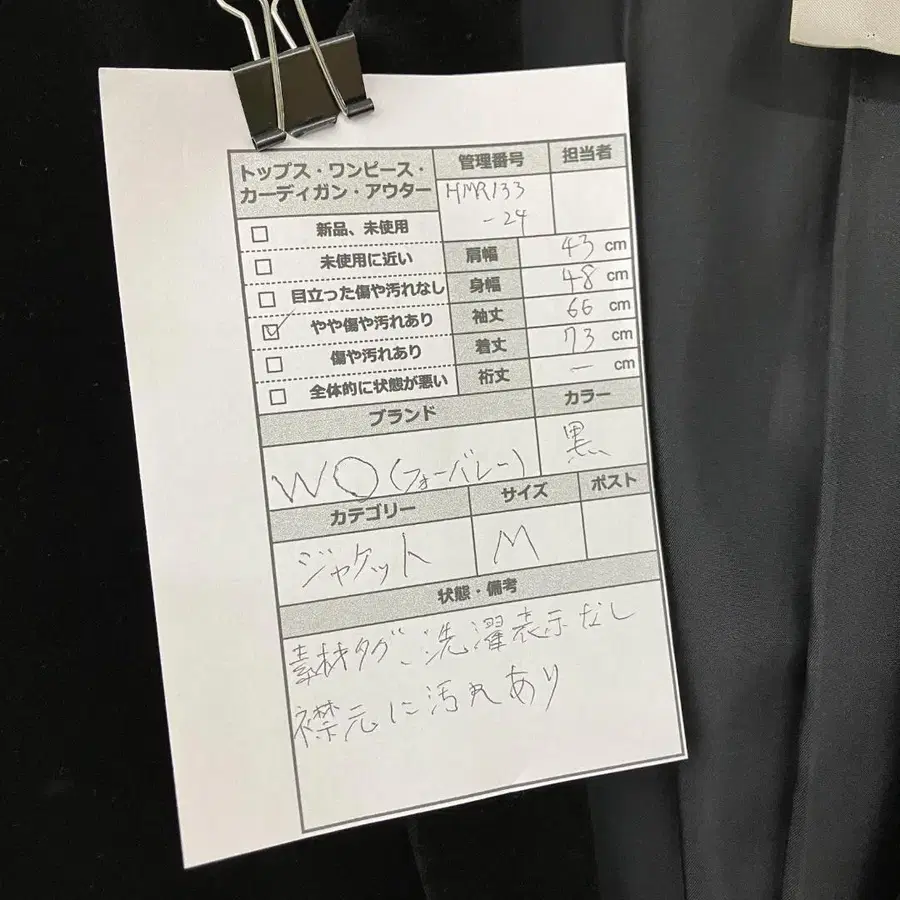 トップス・ワンピース・
カーディガン・アウター
管理番号
担当者
HMR133
-24
新品、未使用
未使用に近い
目立った傷や汚れなし
やや傷や汚れあり
傷や汚れあり
全体的に状態が悪い
肩幅 43 cm
身幅 48 cm
袖丈 66 cm
着丈 73 cm
裄丈 ー cm
ブランド
カラー
WO(フォーバレー)
黒
カテゴリー
サイズ
ポスト
ジャケット
M
状態・備考
素材タグ、洗濯表示なし
襟元に汚れあり